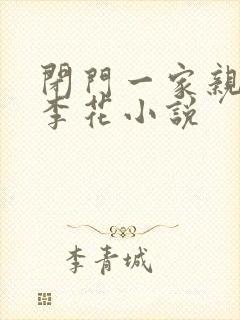 閉門一家親
李花小說
李青城